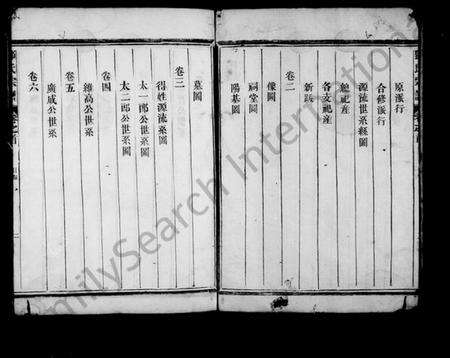 原派行
合修派行
源流世系總圖
總祀產
各支祀產
新跋
卷二
像圖
祠堂圖
陽基圖
墓圖
卷三
得姓源流系圖
太一郎公世系圖
太二郎公世系圖
卷四
維高公世系
卷五
廣成公世系
卷六
FamilySearch International